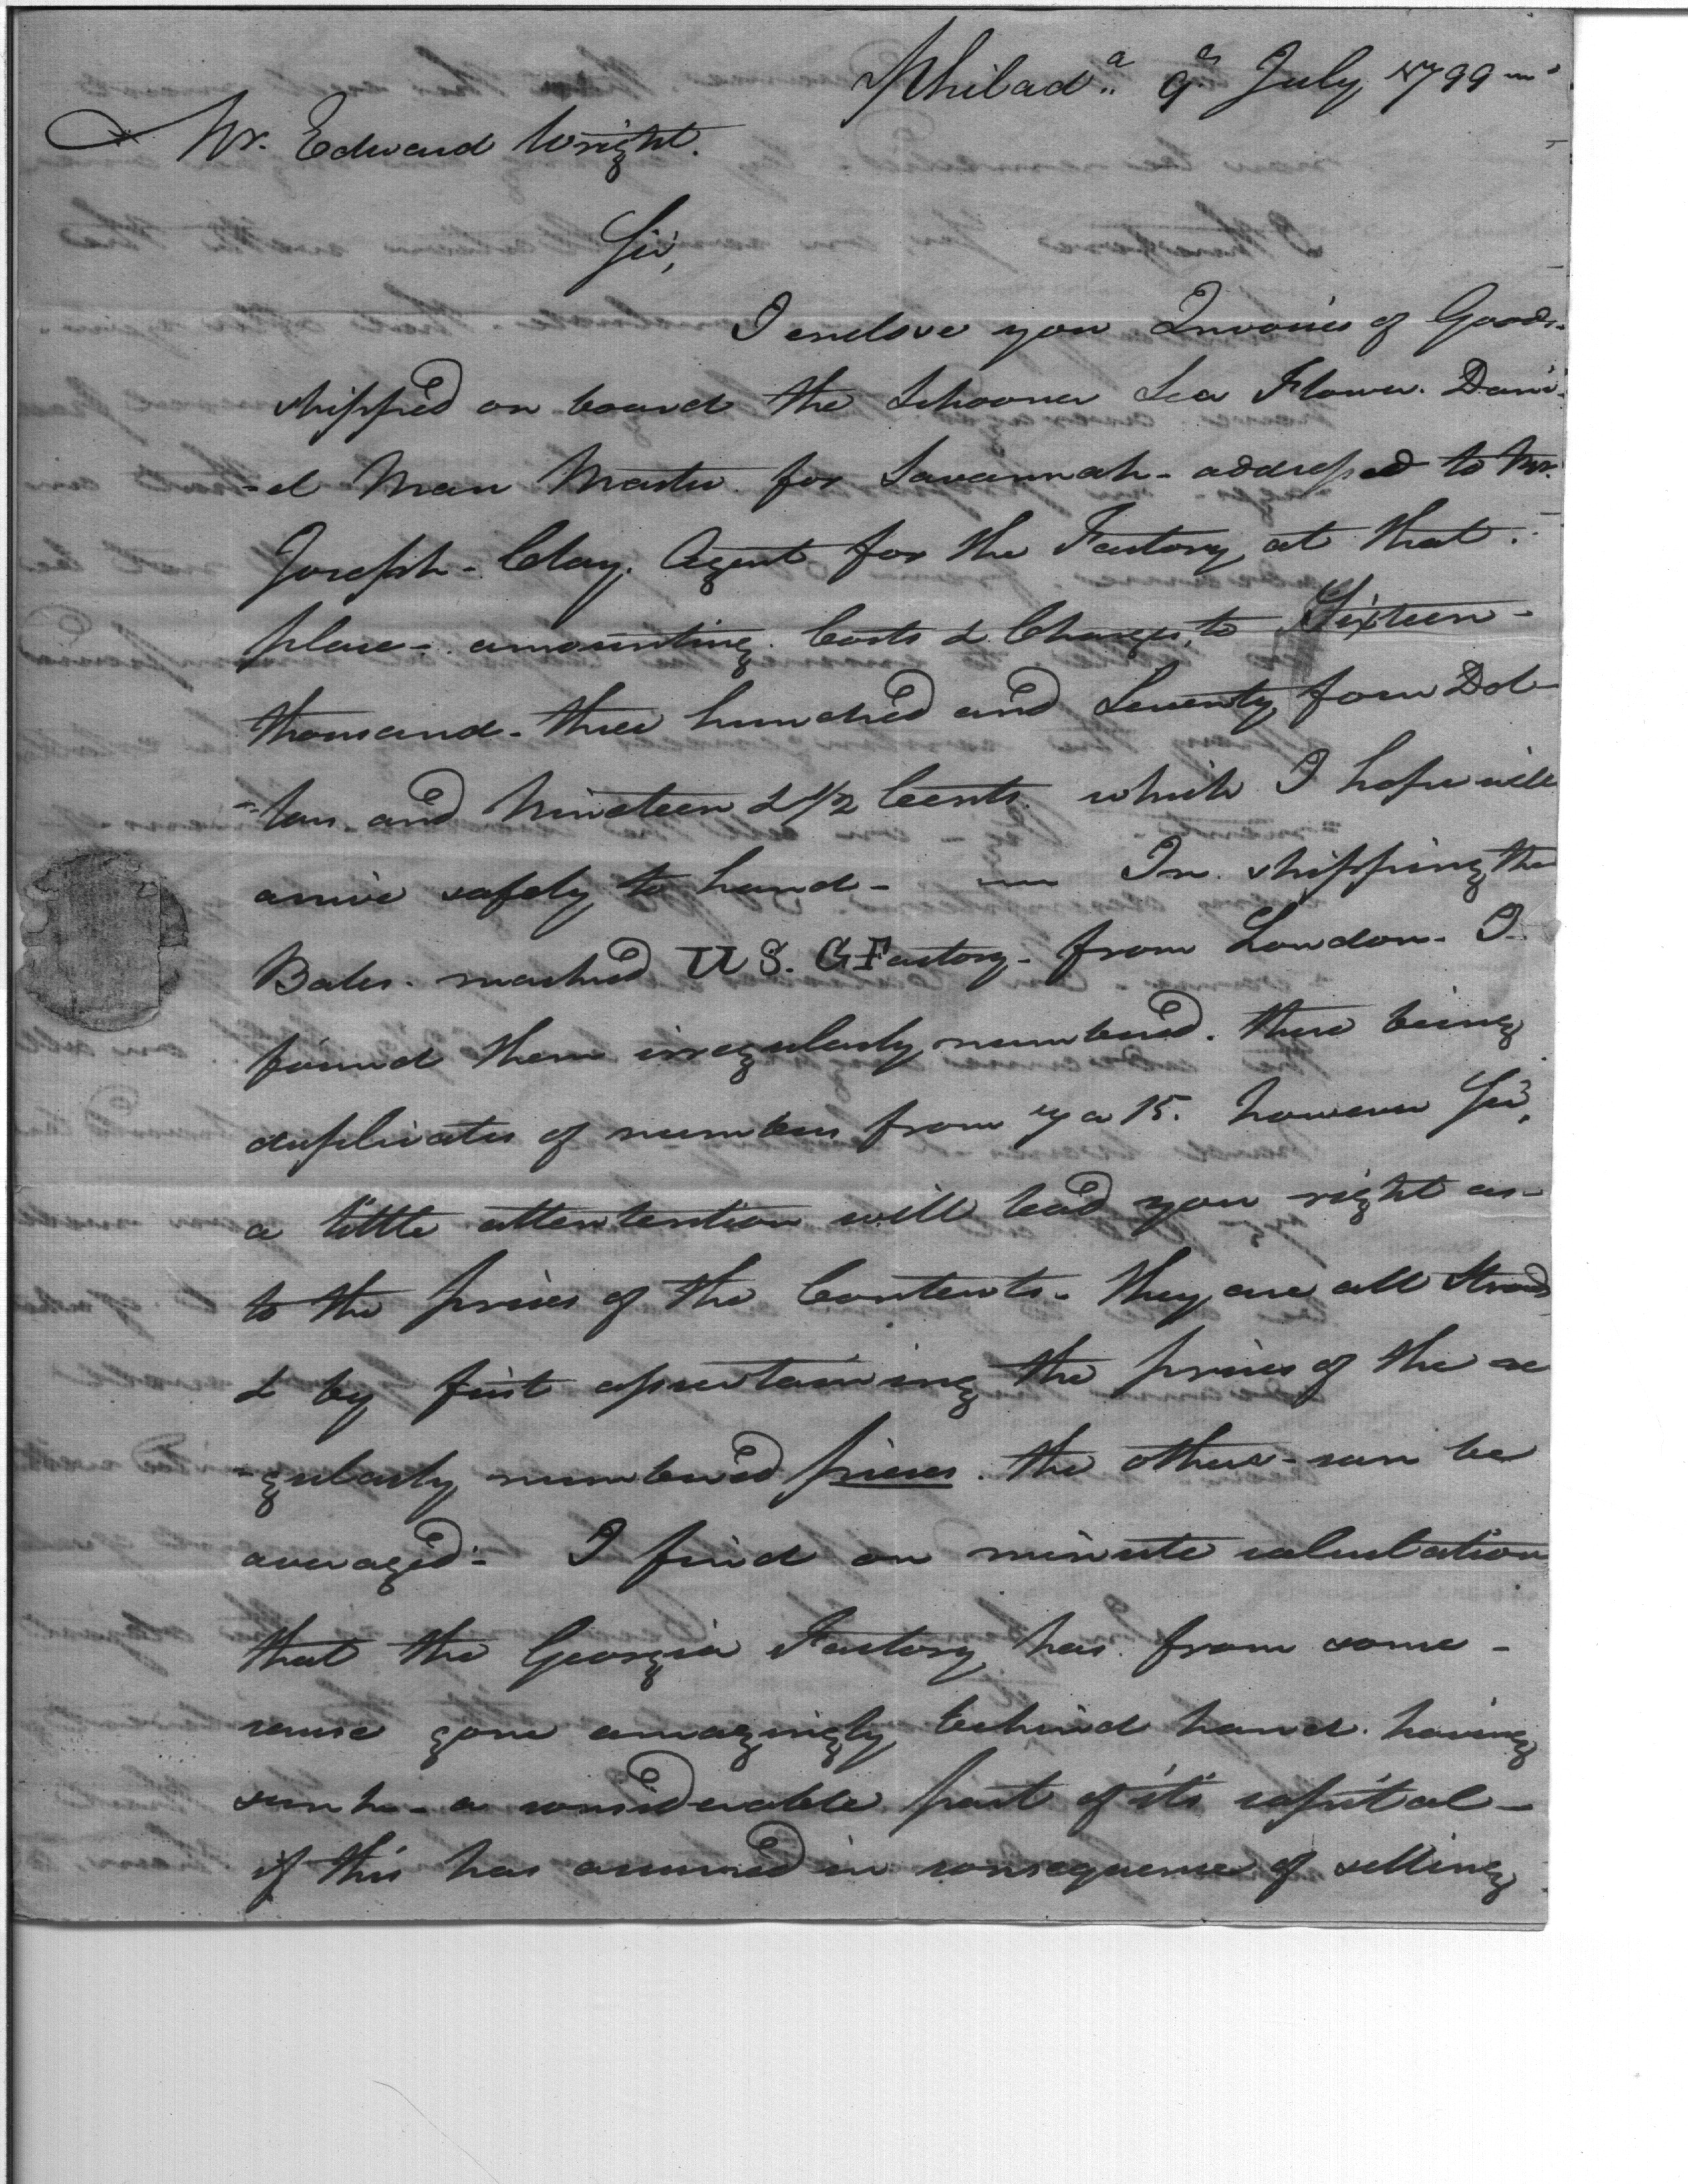 Philad.a 9th July 1799
Mr. Edward Wright.
Sir,
I enclose you Invoices of Goods
shipped on board the Schooner Sea Flower. Dani-
-el Man Master for Savannah - addressed to Mr.
Joseph - Clay. Agent for the Factory at that.
place - amounting Costs & Charges, to Sixteen -
thousand - three hundred and Seventy four Dol-
-lars and Nineteen & 1/2 Cents which I hope will
arrive safely to hand - In shipping the
Bales. marked US. GFactory - from London - I
found them irregularly numbered. there being
duplicates of numbers from 7 a 15. however Sir,
a little attentention will lead you right as
to the prices of the Contents - they are all Strouds
& by first assertaining the prices of the re
-gularly numbered pieces. the others - can be
averaged - I find on minute calculation
that the Georgia Factory has from some -
cause gone amazingly behind hand. having
sunk - a considerable part of it's capital -
if this has occurred in consequence of selling